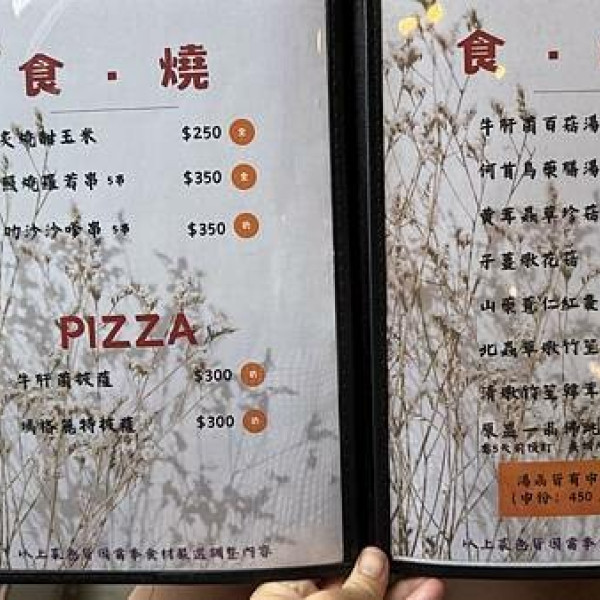 食 · 燒
炙燒甜玉米 $250 全
照燒羅若串 5串 $350 全
叻沙沙嗲串 5串 $350 奶
PIZZA
牛肝菌披薩 $300 奶
瑪格麗特披薩 $300 奶
以上菜色皆因當季食材嚴選調整內容
食 ·
牛肝菌百菇湯
何首烏藥膳湯
黃耳蟲草珍菇
子薑燉花菇
山藥薏仁紅棗
北蟲草燉竹笙
清燉竹笙
一品佛跳
需5天前預訂
湯品皆有中
(中份: 450
以上菜色皆因當季